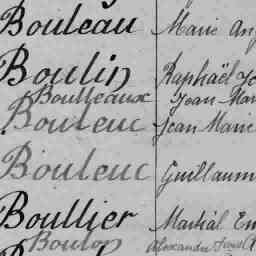 Bouleau Marie
Boulin Raphaël
Boulleaux Jean
Bouleuc Jean Marie
Bouleuc Guillaum
Boullier Martial Em
Boulon Alexandre